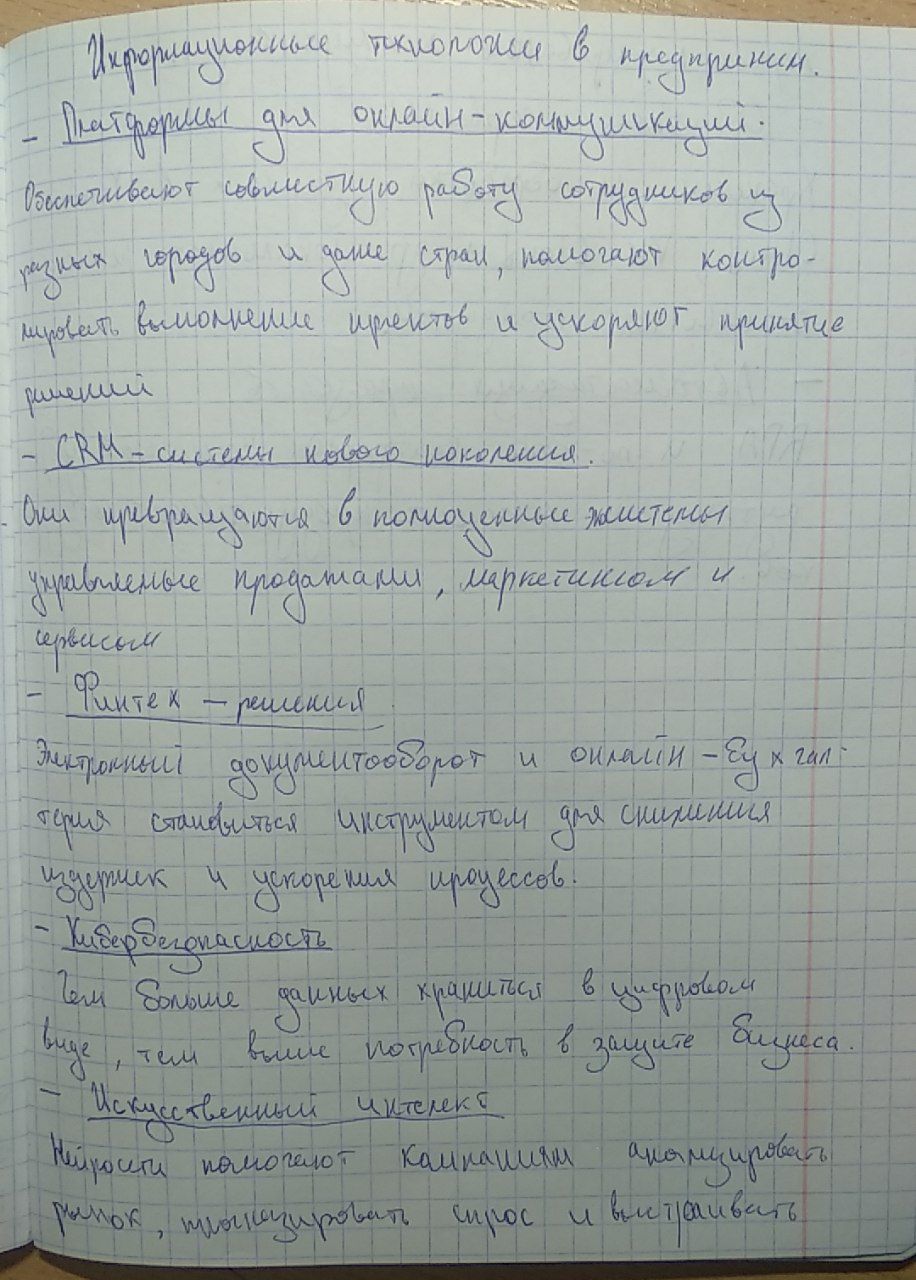 Информационные технологии в предприним.
- Платформы для онлайн-коммуникаций.
Обеспечивают совместную работу сотрудников из
разных городов и даже стран, помогают контро-
лировать выполнение проектов и ускоряют принятие
решений
- CRM-системы нового поколения.
Они превращаются в полноценные экосистемы
управляемые продажами, маркетингом и
сервисом
- Финтех – решения
Электронный документооборот и онлайн-бухгал-
терия становиться инструментом для снижения
издержек и ускорения процессов.
- Кибербезопасность
Чем больше данных храниться в цифровом
виде, тем выше потребность в защите бизнеса.
- Искусственный интелект
Нейросети помогают компаниям анализировать
рынок, прогнозировать спрос и выстраивать